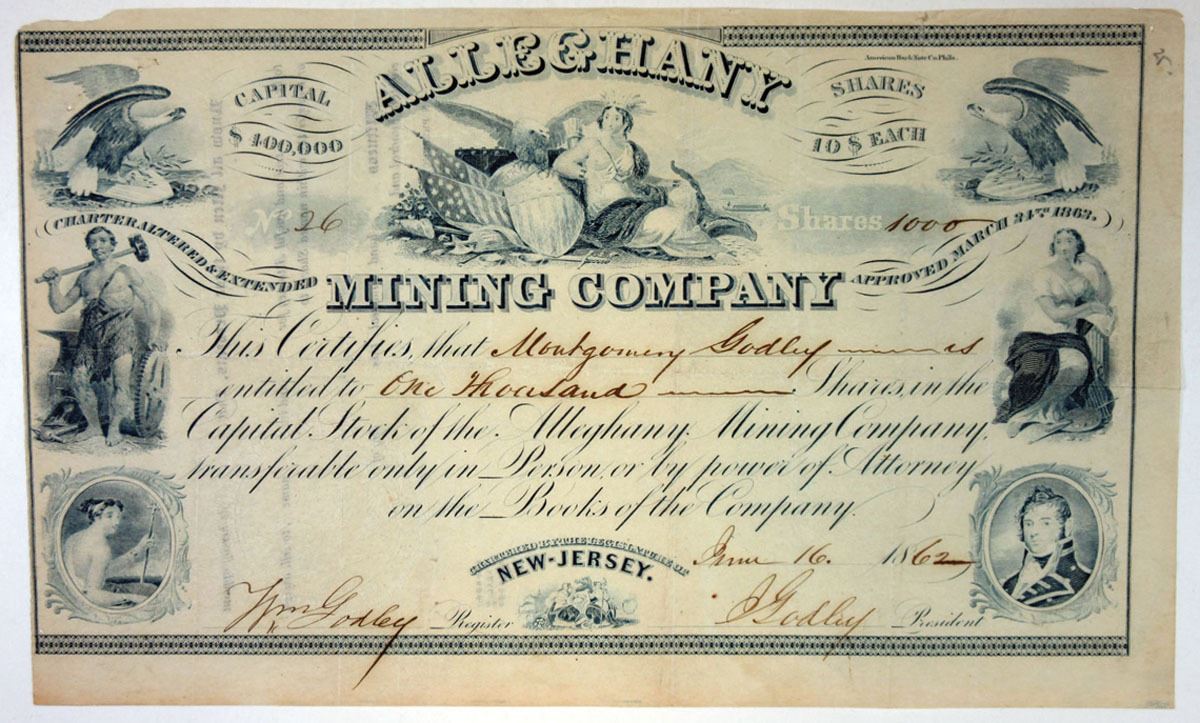 ALLEGHANY
American Bank Note Co. Phila.
CAPITAL
$ 400,000
SHARES
10 $ EACH
No 26
Shares 1000
CHARTER ALTERED & EXTENDED
APPROVED MARCH 24TH 1862.
MINING COMPANY
This Certifies, that Montgomery Godley is
entitled to One Thousand Shares, in the
Capital Stock of the Alleghany Mining Company,
transferable only in Person, or by power of Attorney
on the Books of the Company.
CHARTERED BY THE LEGISLATURE OF
NEW-JERSEY.
June 16. 1862
Wm Godley Register
J Godley President